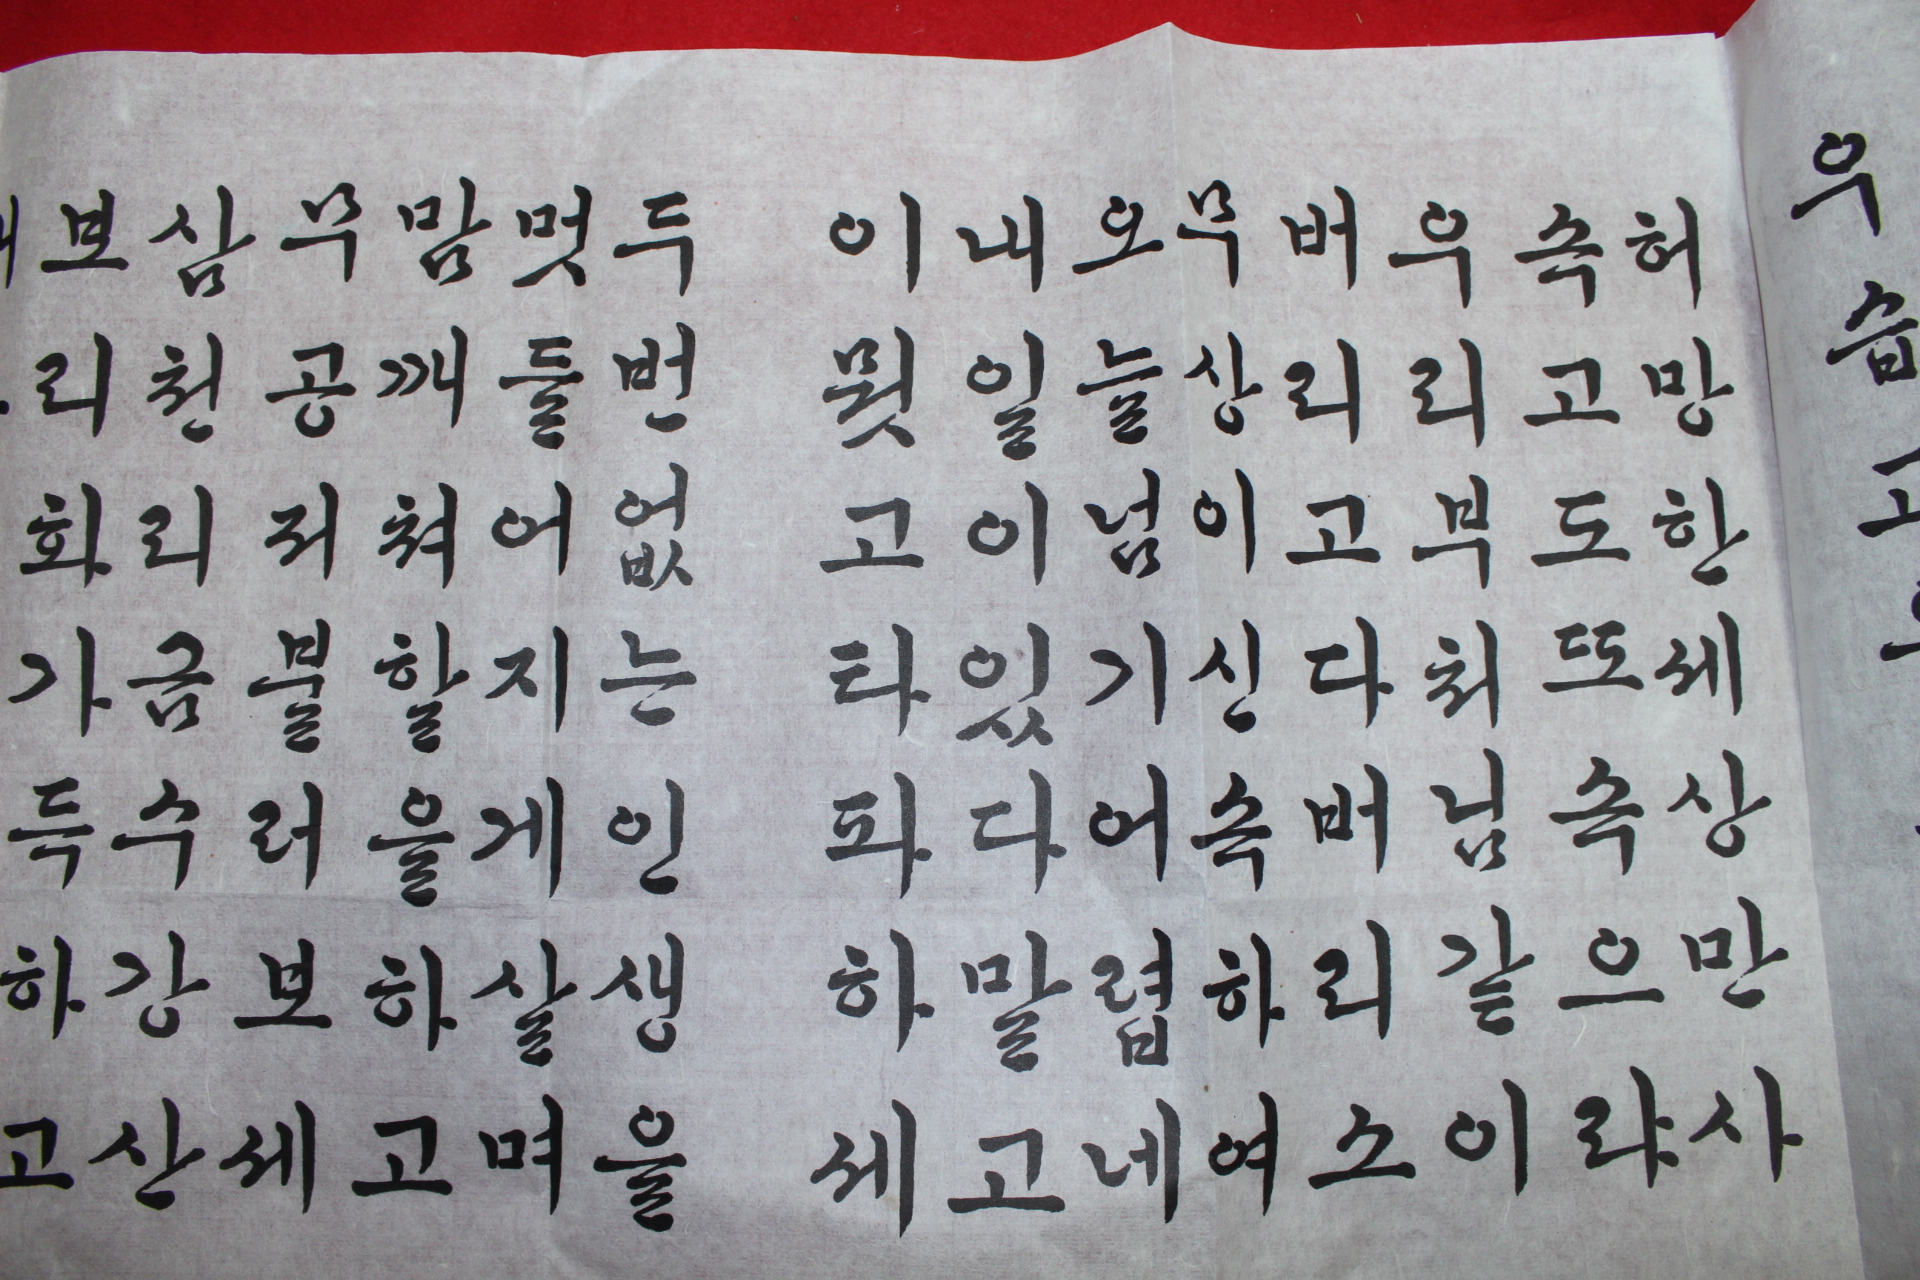 우습고
허망한세상만사
속고도또속으랴
우리부처님같이
버리고다버리소
무상이신속하여
오늘넘기어렵네
내일이있다말고
이뭣고타파하세
두번없는인생을
멋들어지게살며
맘깨쳐할을하고
무공저불러보세
삼천리금수강산
보리화가득하고